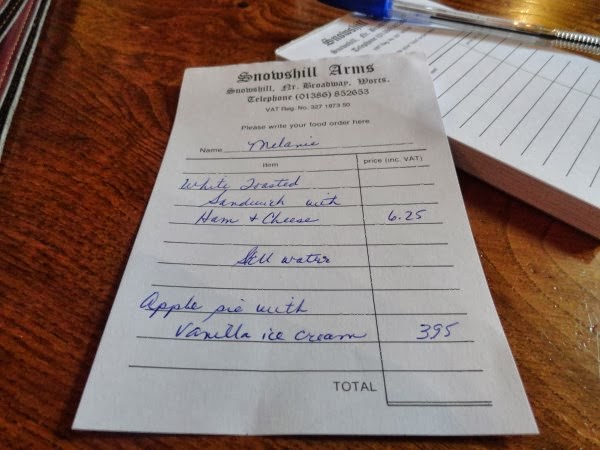 Snowshill Arms
Snowshill, Nr. Broadway, Worcs.
Telephone (01386) 852653
VAT Reg. No. 327 1973 50
Please write your food order here
Name Melanie
item price (inc. VAT)
White Toasted
Sandwich with
Ham + Cheese 6.25
Still water
Apple pie with
Vanilla ice cream 395
TOTAL
Snowshill
Snowshill, Nr.
Telephone